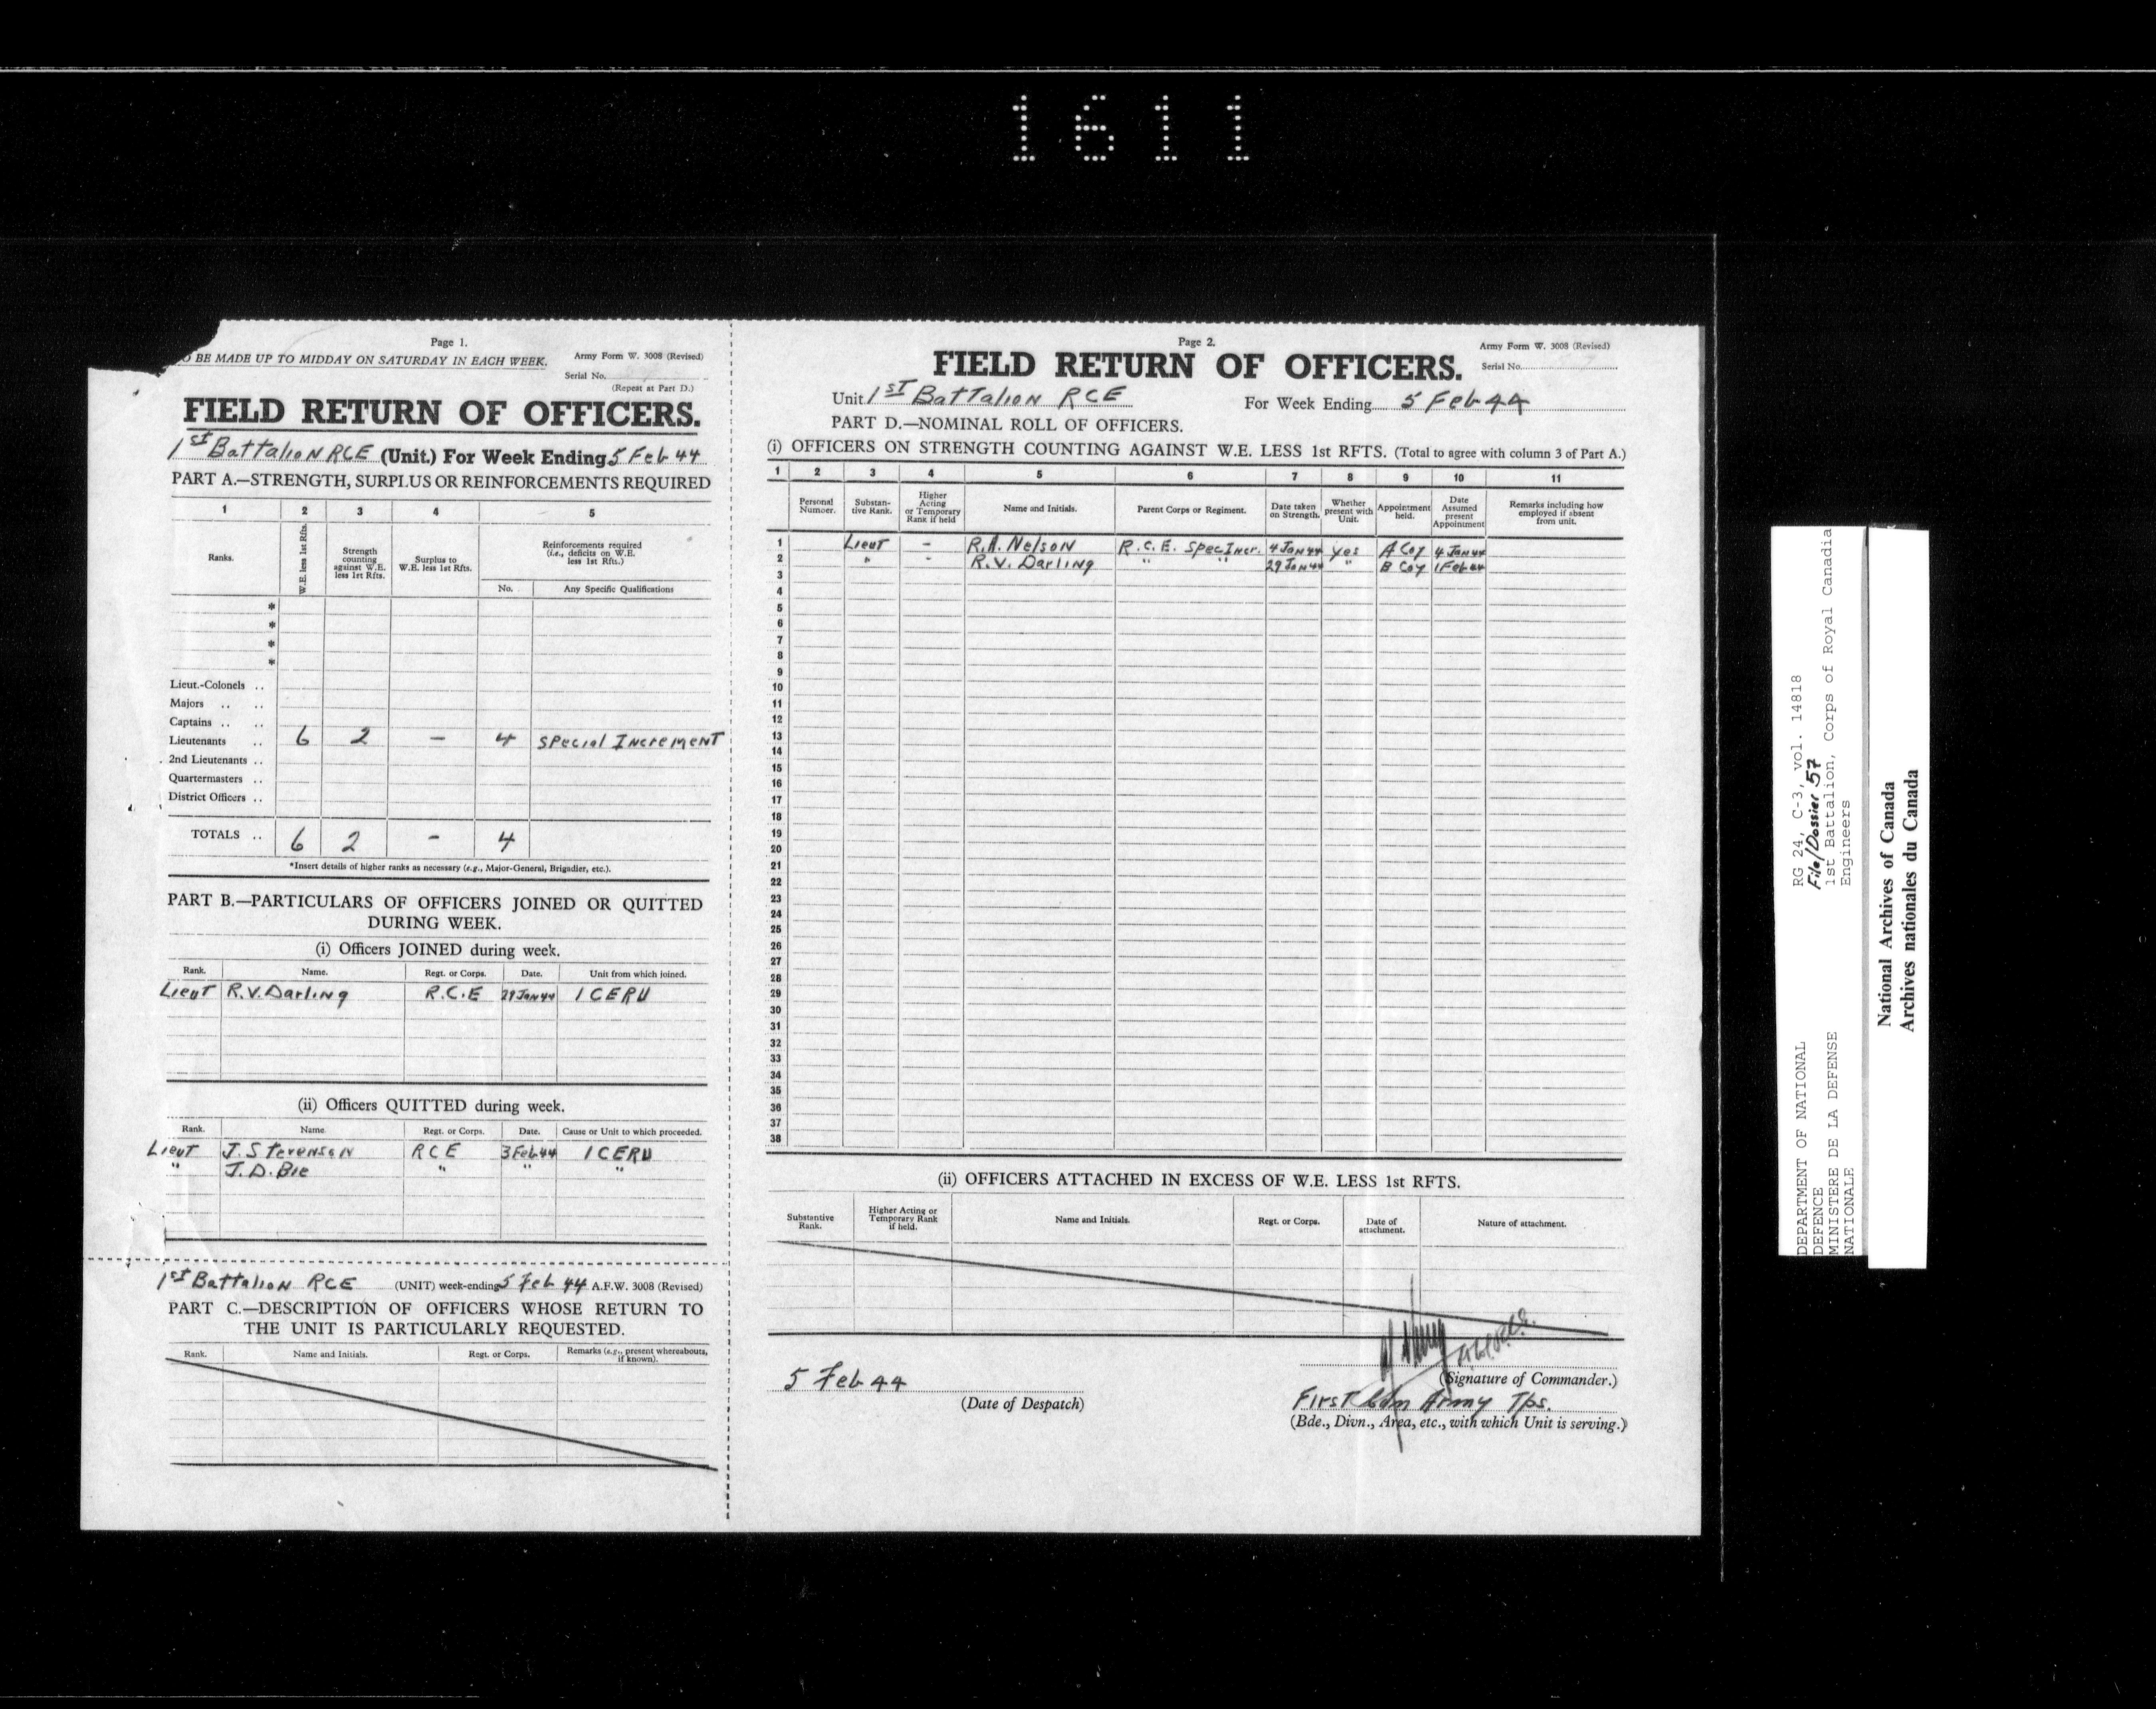 1611
Page 1.
O BE MADE UP TO MIDDAY ON SATURDAY IN EACH WEEK.
Army Form W. 3008 (Revised)
Serial No.
(Repeat at Part D.)
FIELD RETURN OF OFFICERS.
1st Battalion RCE (Unit.) For Week Ending 5 Feb 44
PART A.—STRENGTH, SURPLUS OR REINFORCEMENTS REQUIRED
1 2 3 4 5
Ranks. W.E. less 1st Rfts. Strength counting against W.E. less 1st Rfts. Surplus to W.E. less 1st Rfts. Reinforcements required (i.e., deficits on W.E. less 1st Rfts.)
No. Any Specific Qualifications
*
*
*
*
Lieut.-Colonels ..
Majors .. ..
Captains .. ..
Lieutenants .. 6 2 – 4 Special Increment
2nd Lieutenants ..
Quartermasters ..
District Officers ..
TOTALS .. 6 2 – 4
*Insert details of higher ranks as necessary (e.g., Major-General, Brigadier, etc.).
PART B.—PARTICULARS OF OFFICERS JOINED OR QUITTED
DURING WEEK.
(i) Officers JOINED during week.
Rank. Name. Regt. or Corps. Date. Unit from which joined.
Lieut R.V. Darling R.C.E 29 Jan 44 1 CERU
(ii) Officers QUITTED during week.
Rank. Name. Regt. or Corps. Date. Cause or Unit to which proceeded.
Lieut J. Stevenson RCE 3 Feb 44 1 CERU
" J. D. Bie " " "
1st Battalion RCE (UNIT) week-ending 5 Feb 44 A.F.W. 3008 (Revised)
PART C.—DESCRIPTION OF OFFICERS WHOSE RETURN TO
THE UNIT IS PARTICULARLY REQUESTED.
Rank. Name and Initials. Regt. or Corps. Remarks (e.g., present whereabouts, if known).
Page 2.
Army Form W. 3008 (Revised)
FIELD RETURN OF OFFICERS.
Serial No.
Unit 1st Battalion RCE For Week Ending 5 Feb 44
PART D.—NOMINAL ROLL OF OFFICERS.
(i) OFFICERS ON STRENGTH COUNTING AGAINST W.E. LESS 1st RFTS. (Total to agree with column 3 of Part A.)
1 2 3 4 5 6 7 8 9 10 11
Personal Number. Substantive Rank. Higher Acting or Temporary Rank if held Name and Initials. Parent Corps or Regiment. Date taken on Strength. Whether present with Unit. Appointment held. Date Assumed present Appointment Remarks including how employed if absent from unit.
1 Lieut – R.A. Nelson R.C.E. Spec Incr. 4 Jan 44 yes A Coy 4 Jan 44
2 " – R.V. Darling " " 29 Jan 44 " B Coy 1 Feb 44
3
4
5
6
7
8
9
10
11
12
13
14
15
16
17
18
19
20
21
22
23
24
25
26
27
28
29
30
31
32
33
34
35
36
37
38
(ii) OFFICERS ATTACHED IN EXCESS OF W.E. LESS 1st RFTS.
Substantive Rank. Higher Acting or Temporary Rank if held. Name and Initials. Regt. or Corps. Date of attachment. Nature of attachment.
5 Feb 44
(Date of Despatch)
(Signature of Commander.)
First Cdn Army Tps.
(Bde., Divn., Area, etc., with which Unit is serving.)
DEPARTMENT OF NATIONAL
DEFENCE
MINISTERE DE LA DEFENSE
NATIONALE
RG 24, C-3, vol. 14818
File/Dossier 57
1st Battalion, Corps of Royal Canadia
Engineers
National Archives of Canada
Archives nationales du Canada